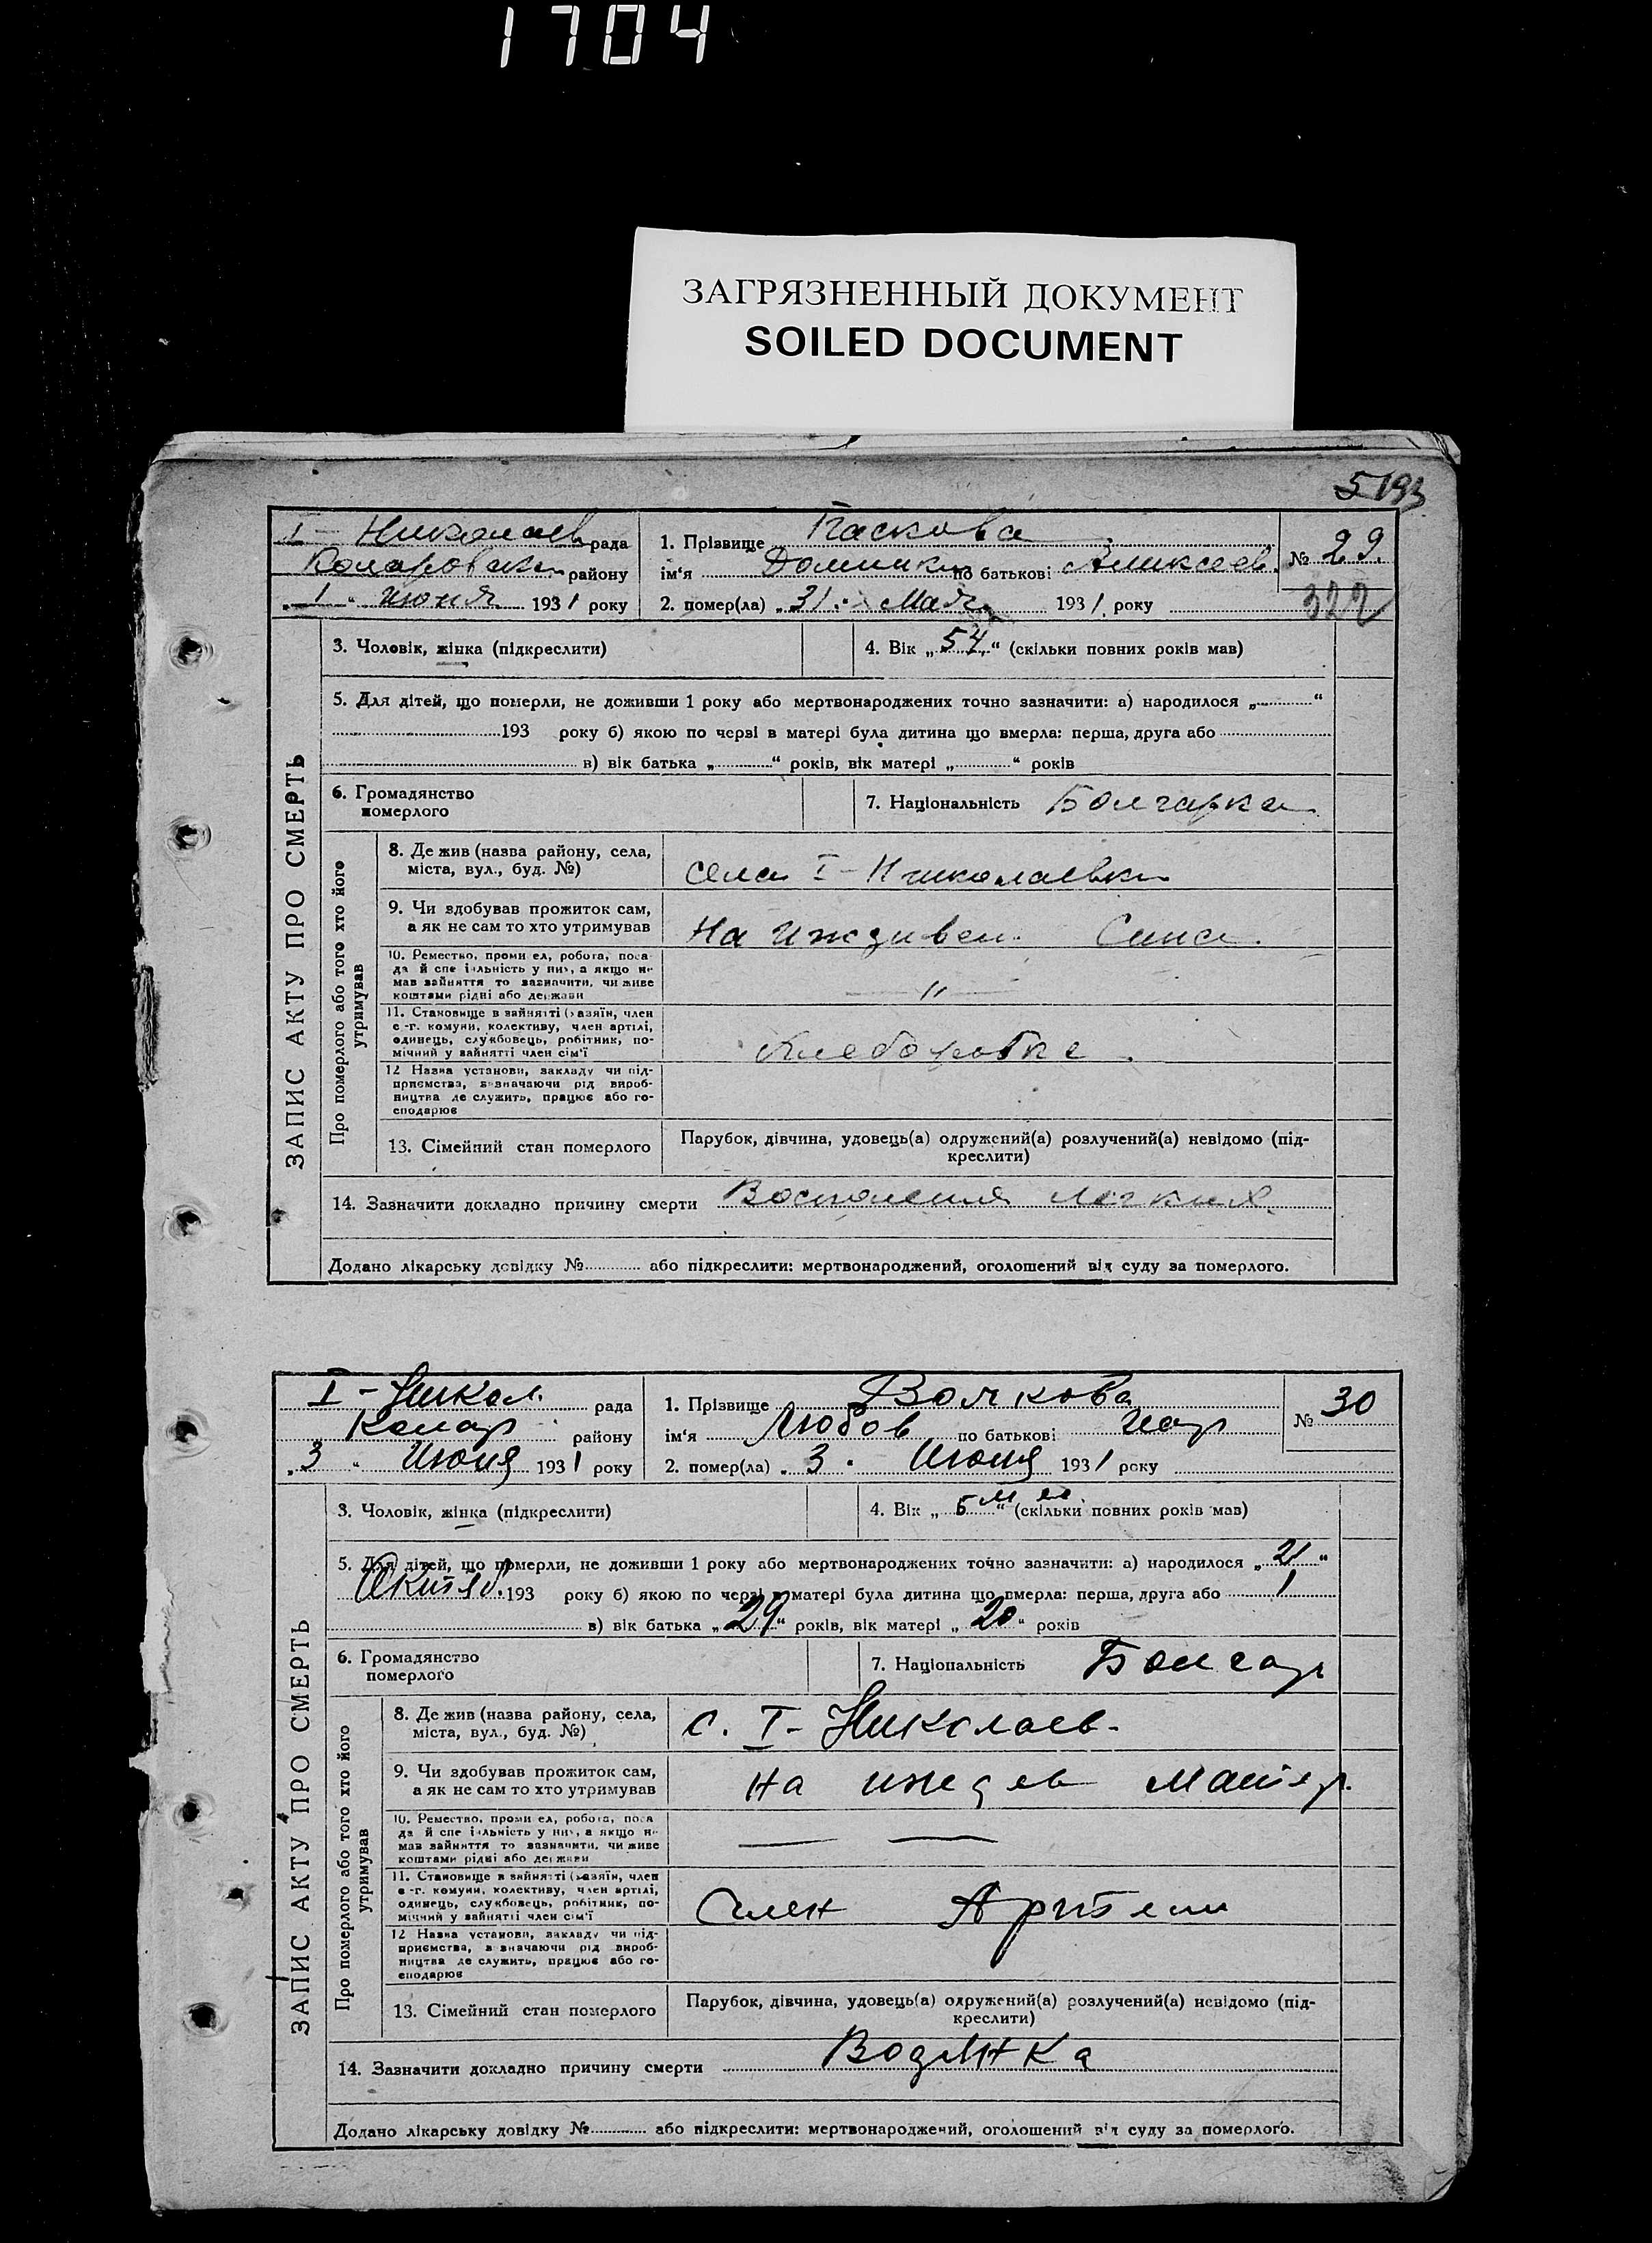 1704
ЗАГРЯЗНЕННЫЙ ДОКУМЕНТ
SOILED DOCUMENT
5193
I - Николаев рада
Коларовски району
„ 1 “ июня 1931 року
1. Прізвище Паскова
ім‘я Домники по батькові Аликсеев.
2. помер(ла) „31“ Мая 1931 року
№ 29.
322
ЗАПИС АКТУ ПРО СМЕРТЬ
3. Чоловік, жінка (підкреслити)
4. Вік „54“ (скільки повних років мав)
5. Для дітей, що померли, не доживши 1 року або мертвонароджених точно зазначити: а) народилося „ “
193 року б) якою по черзі в матері була дитина що вмерла: перша, друга або
в) вік батька „ “ років, вік матері „ “ років
6. Громадянство
померлого
7. Національність Болгарка
Про померлого або того хто його
утримував
8. Де жив (назва району, села,
міста, вул., буд. №)
села I - Николаевки
9. Чи здобував прожиток сам,
а як не сам то хто утримував
На иждивен. Сина.
10. Ремество, проми ел, робота, поса
да й спе і льність у ни , а якщо н
мав зайняття то зазначити, чи живе
коштами рідні або держави
— " —
11. Становище в зайнятті (хазяїн, член
с -г. комуни, колективу, член артілі,
одинець, службовець, робітник, по-
мічний у зайнятті член сім'ї
12 Назва установи, закладу чи під-
приємства, визначаючи рід вироб-
ництва де служить, працює або го-
сподарює
13. Сімейний стан померлого
Парубок, дівчина, удовець(а) одружений(а) розлучений(а) невідомо (під-
креслити)
14. Зазначити докладно причину смерти Воспаления легких
Додано лікарську довідку № або підкреслити: мертвонароджений, оголошений від суду за померлого.
I - Никол. рада
Колар району
„ 3 “ Июня 1931 року
1. Прізвище Волкова
ім‘я Любов по батькові
2. помер(ла) „ 3 “ Июня 1931 року
№ 30
ЗАПИС АКТУ ПРО СМЕРТЬ
3. Чоловік, жінка (підкреслити)
4. Вік „ “ (скільки повних років мав)
5. Для дітей, що померли, не доживши 1 року або мертвонароджених точно зазначити: а) народилося „ 21 “
193 року б) якою по черзі в матері була дитина що вмерла: перша, друга або 1
в) вік батька „ 29 “ років, вік матері „ 20 “ років
6. Громадянство
померлого
7. Національність Болгар
Про померлого або того хто його
утримував
8. Де жив (назва району, села,
міста, вул., буд. №)
с. I - Николаев.
9. Чи здобував прожиток сам,
а як не сам то хто утримував
на Матер.
10. Ремество, проми ел, робота, поса
да й спе і льність у ни , а якщо н
мав зайняття то зазначити, чи живе
коштами рідні або держави
— —
11. Становище в зайнятті (хазяїн, член
с -г. комуни, колективу, член артілі,
одинець, службовець, робітник, по-
мічний у зайнятті член сім'ї
Член Артели
12 Назва установи, закладу чи під-
приємства, визначаючи рід вироб-
ництва де служить, працює або го-
сподарює
13. Сімейний стан померлого
Парубок, дівчина, удовець(а) одружений(а) розлучений(а) невідомо (під-
креслити)
14. Зазначити докладно причину смерти Водянка
Додано лікарську довідку № або підкреслити: мертвонароджений, оголошений від суду за померлого.